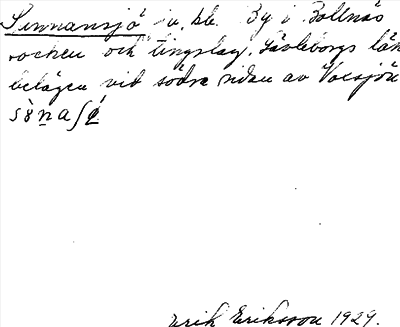 Sunnansjö iv. bb. By i Bollnäs
socken och tingslag, Gävleborgs län
belägen vid södra sidan av Voxsjön
Erik Eriksson 1929.